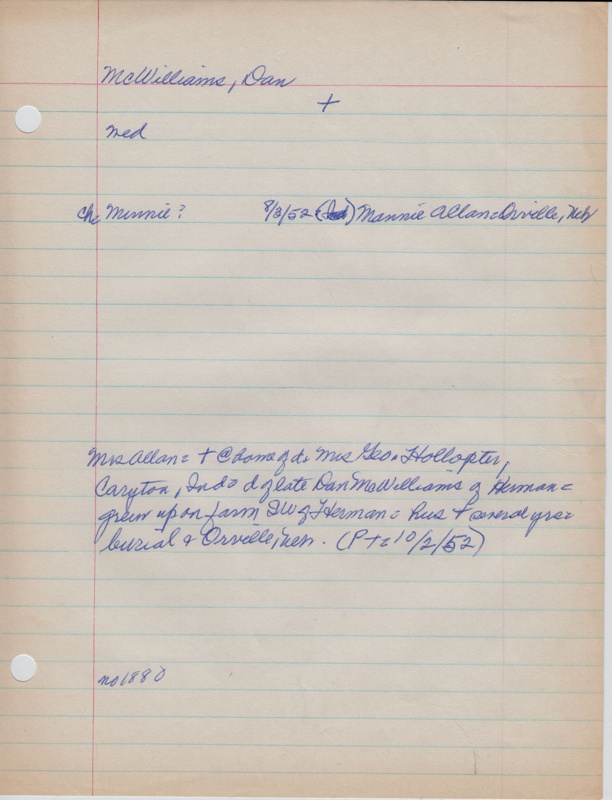 McWilliams, Dan
+
med
ch Minnie? 8/3/52 (Ind) Mannie Allan = Orville, Neb
Mrs Allan = + @ home of d = Mrs Geo. Hollopter,
Caryton, Ind = d of late Dan McWilliams of Herman =
grew up on farm SW of Herman = hus + several yrs =
burial @ Orville, Neb. (P+ = 10/2/52)
no 1880